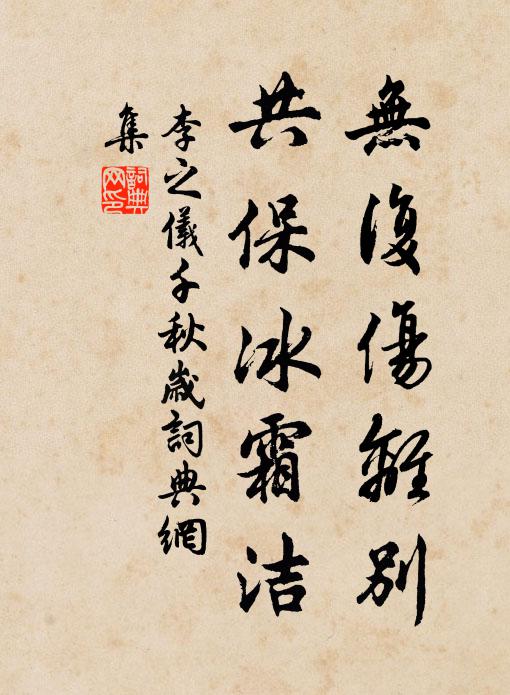 無復傷離別
共保冰霜洁
李之儀千秋歲詞典網
集
詞典网印